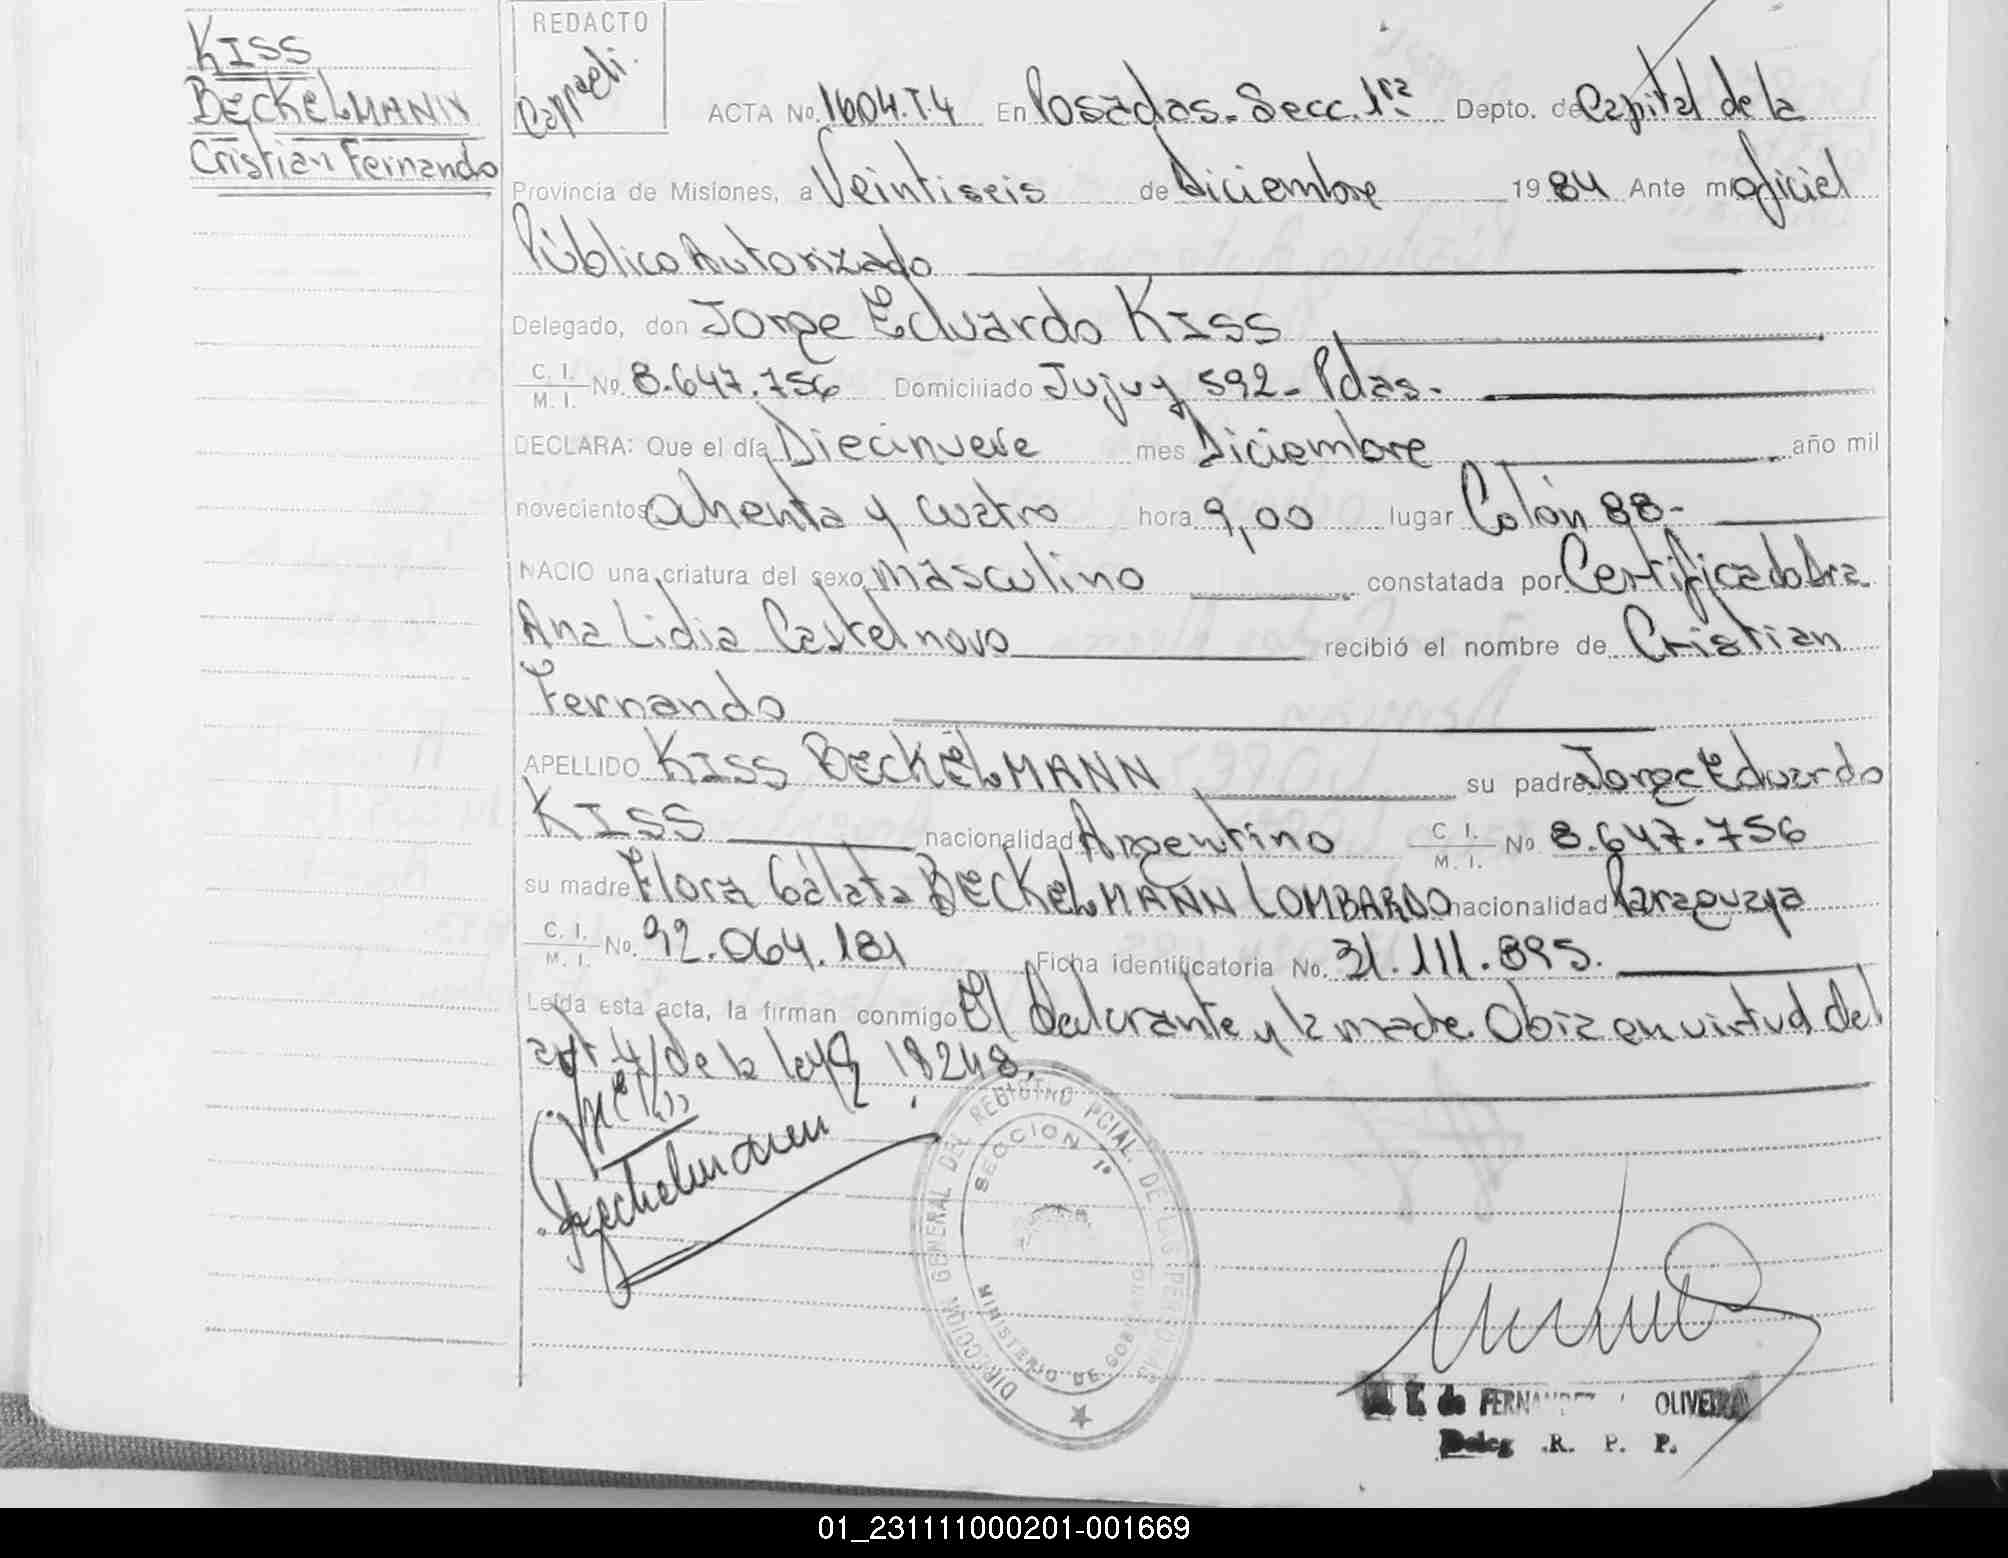 KISS
BECKELMANN
Cristian Fernando
REDACTO
ACTA No. 1604.T.4 En Posadas. Secc. 1ra Depto. de Capital de la
Provincia de Misiones, a Veintiseis de Diciembre 1984 Ante mi oficial
Público Autorizado
Delegado, don Jorge Eduardo KISS
C. I. / M. I. No. 8.647.756 Domiciliado Jujuy 592 - Pdas.
DECLARA: Que el día Diecinueve mes Diciembre año mil
novecientos ochenta y cuatro hora 9,00 lugar Colón 88-
NACIO una criatura del sexo masculino constatada por Certificado Dra.
Ana Lidia Castelnovo recibió el nombre de Cristian
Fernando
APELLIDO KISS BECKELMANN su padre Jorge Eduardo
KISS nacionalidad Argentino C. I. / M. I. No 8.647.756
su madre Flora Gálata BECKELMANN LOMBARDO nacionalidad Paraguaya
C. I. / M. I. No. 92.064.181 Ficha identificatoria No. 31.111.895.
Leída esta acta, la firman conmigo El declarante y la madre. Obra en virtud del
art. 4/ de la ley 18248.
Beckelmann
DIRECCION GENERAL DEL REGISTRO PCIAL. DE LAS PERSONAS
SECCION 1ª
MINISTERIO DE GOBIERNO
de FERNANDEZ OLIVEIRA
Deleg. R. P. P.
01_231111000201-001669